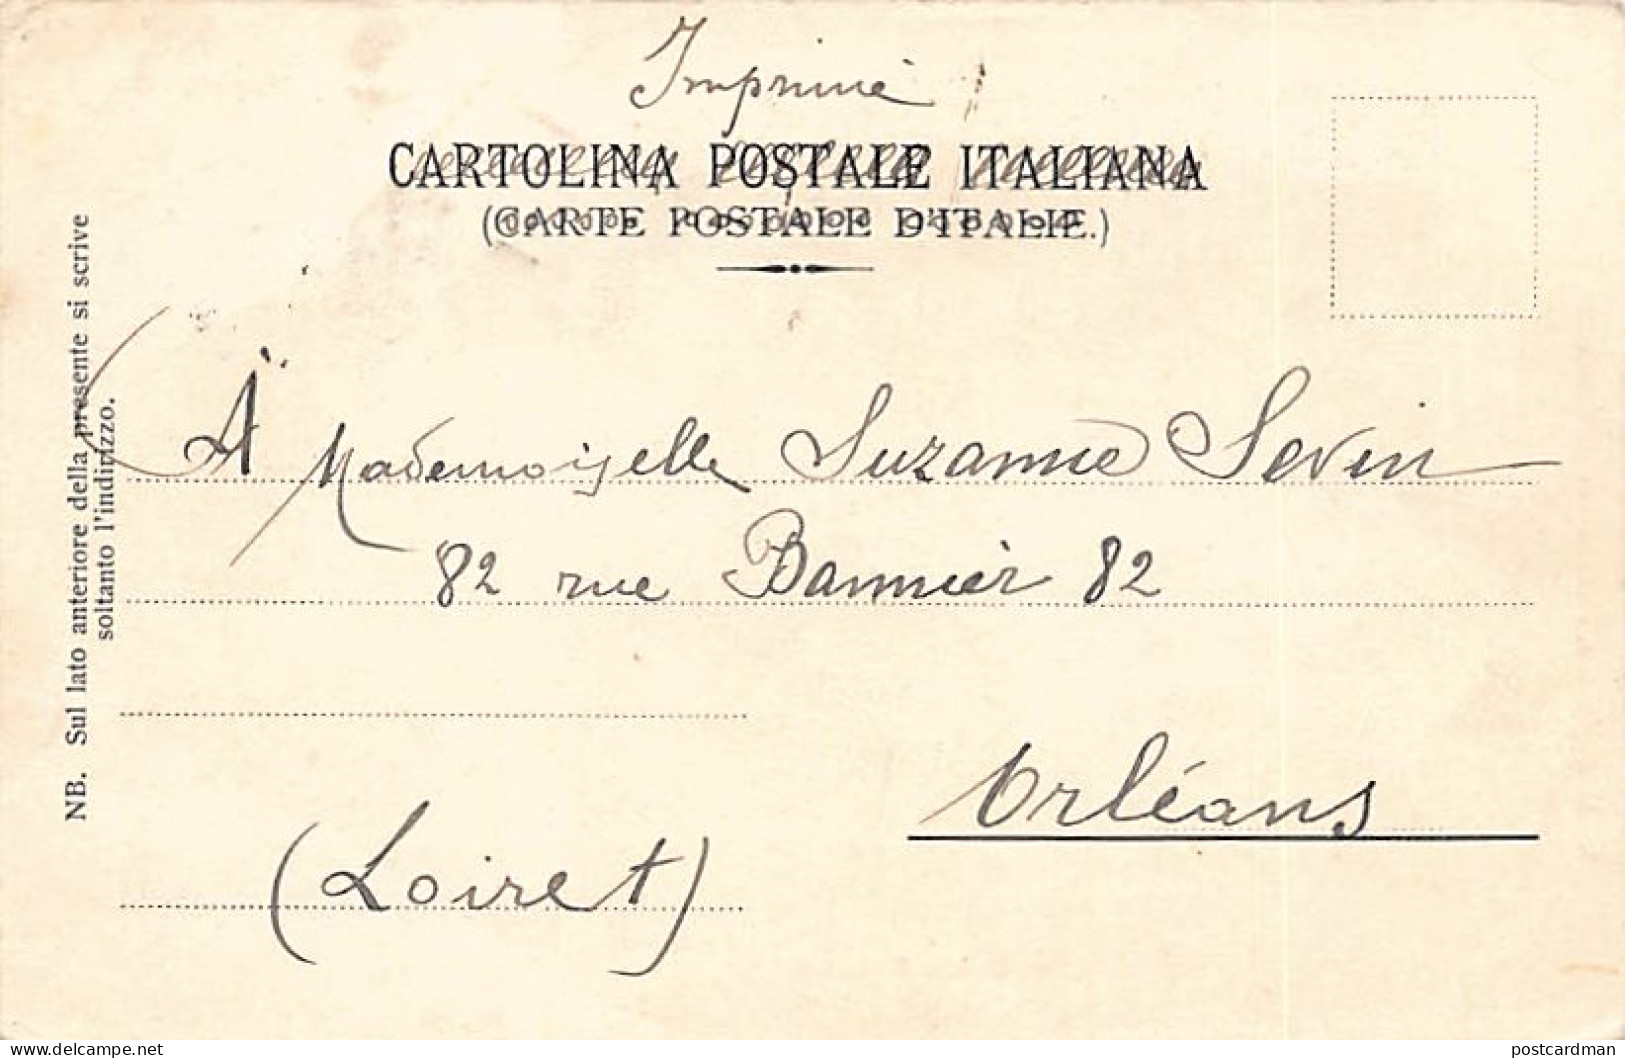 Imprimé
CARTOLINA POSTALE ITALIANA
(CARTE POSTALE D'ITALIE.)
NB. Sul lato anteriore della presente si scrive
soltanto l'indirizzo.
À Mademoiselle Suzanne Sevin
82 rue Bannier 82
Orléans
(Loiret)
www.delcampe.net
postcardman